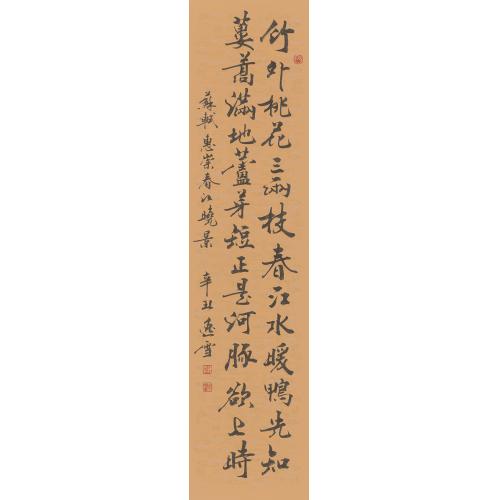 竹外桃花三兩枝春江水暖鴨先知
蔞蒿滿地蘆芽短正是河豚欲上時
蘇軾惠崇春江曉景 辛丑逸雪